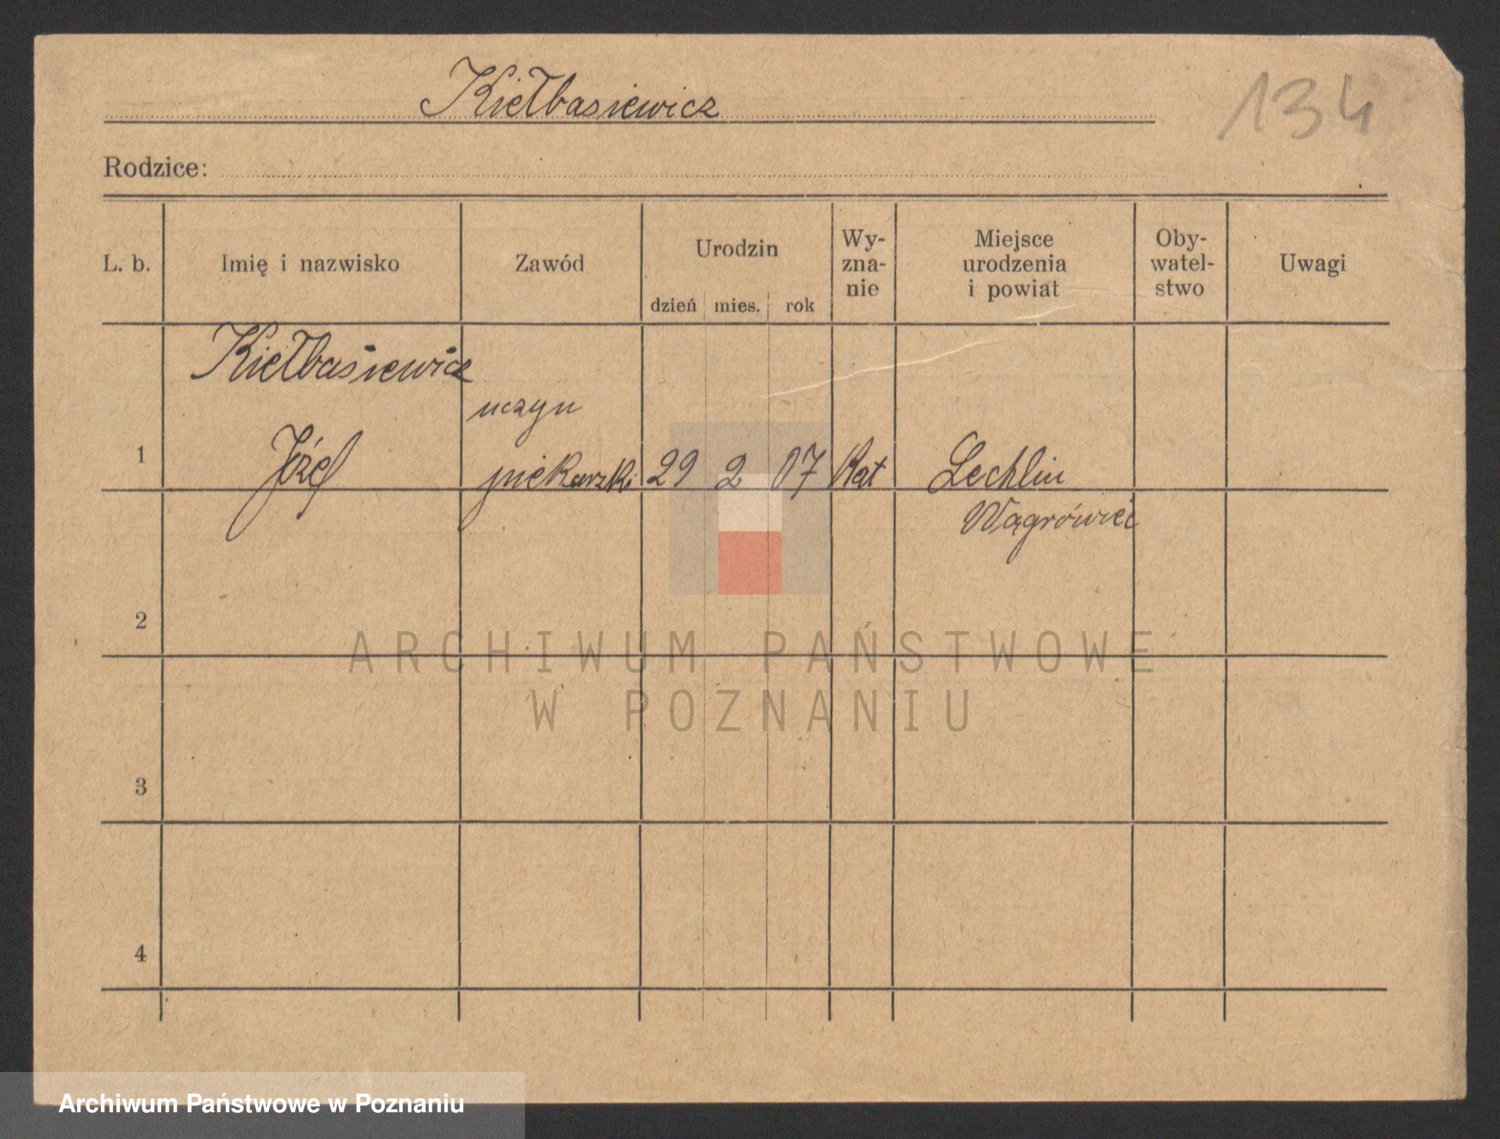 Kiełbasiewicz
134
Rodzice:
L. b. Imię i nazwisko Zawód Urodzin dzień mies. rok Wy-zna-nie Miejsce urodzenia i powiat Oby-watel-stwo Uwagi
Kiełbasiewicz
uczyn
1 Józef piekarski 29 2 07 Kat Lechlin
Wągrówiec
2
ARCHIWUM PAŃSTWOWE
W POZNANIU
3
4
Archiwum Państwowe w Poznaniu